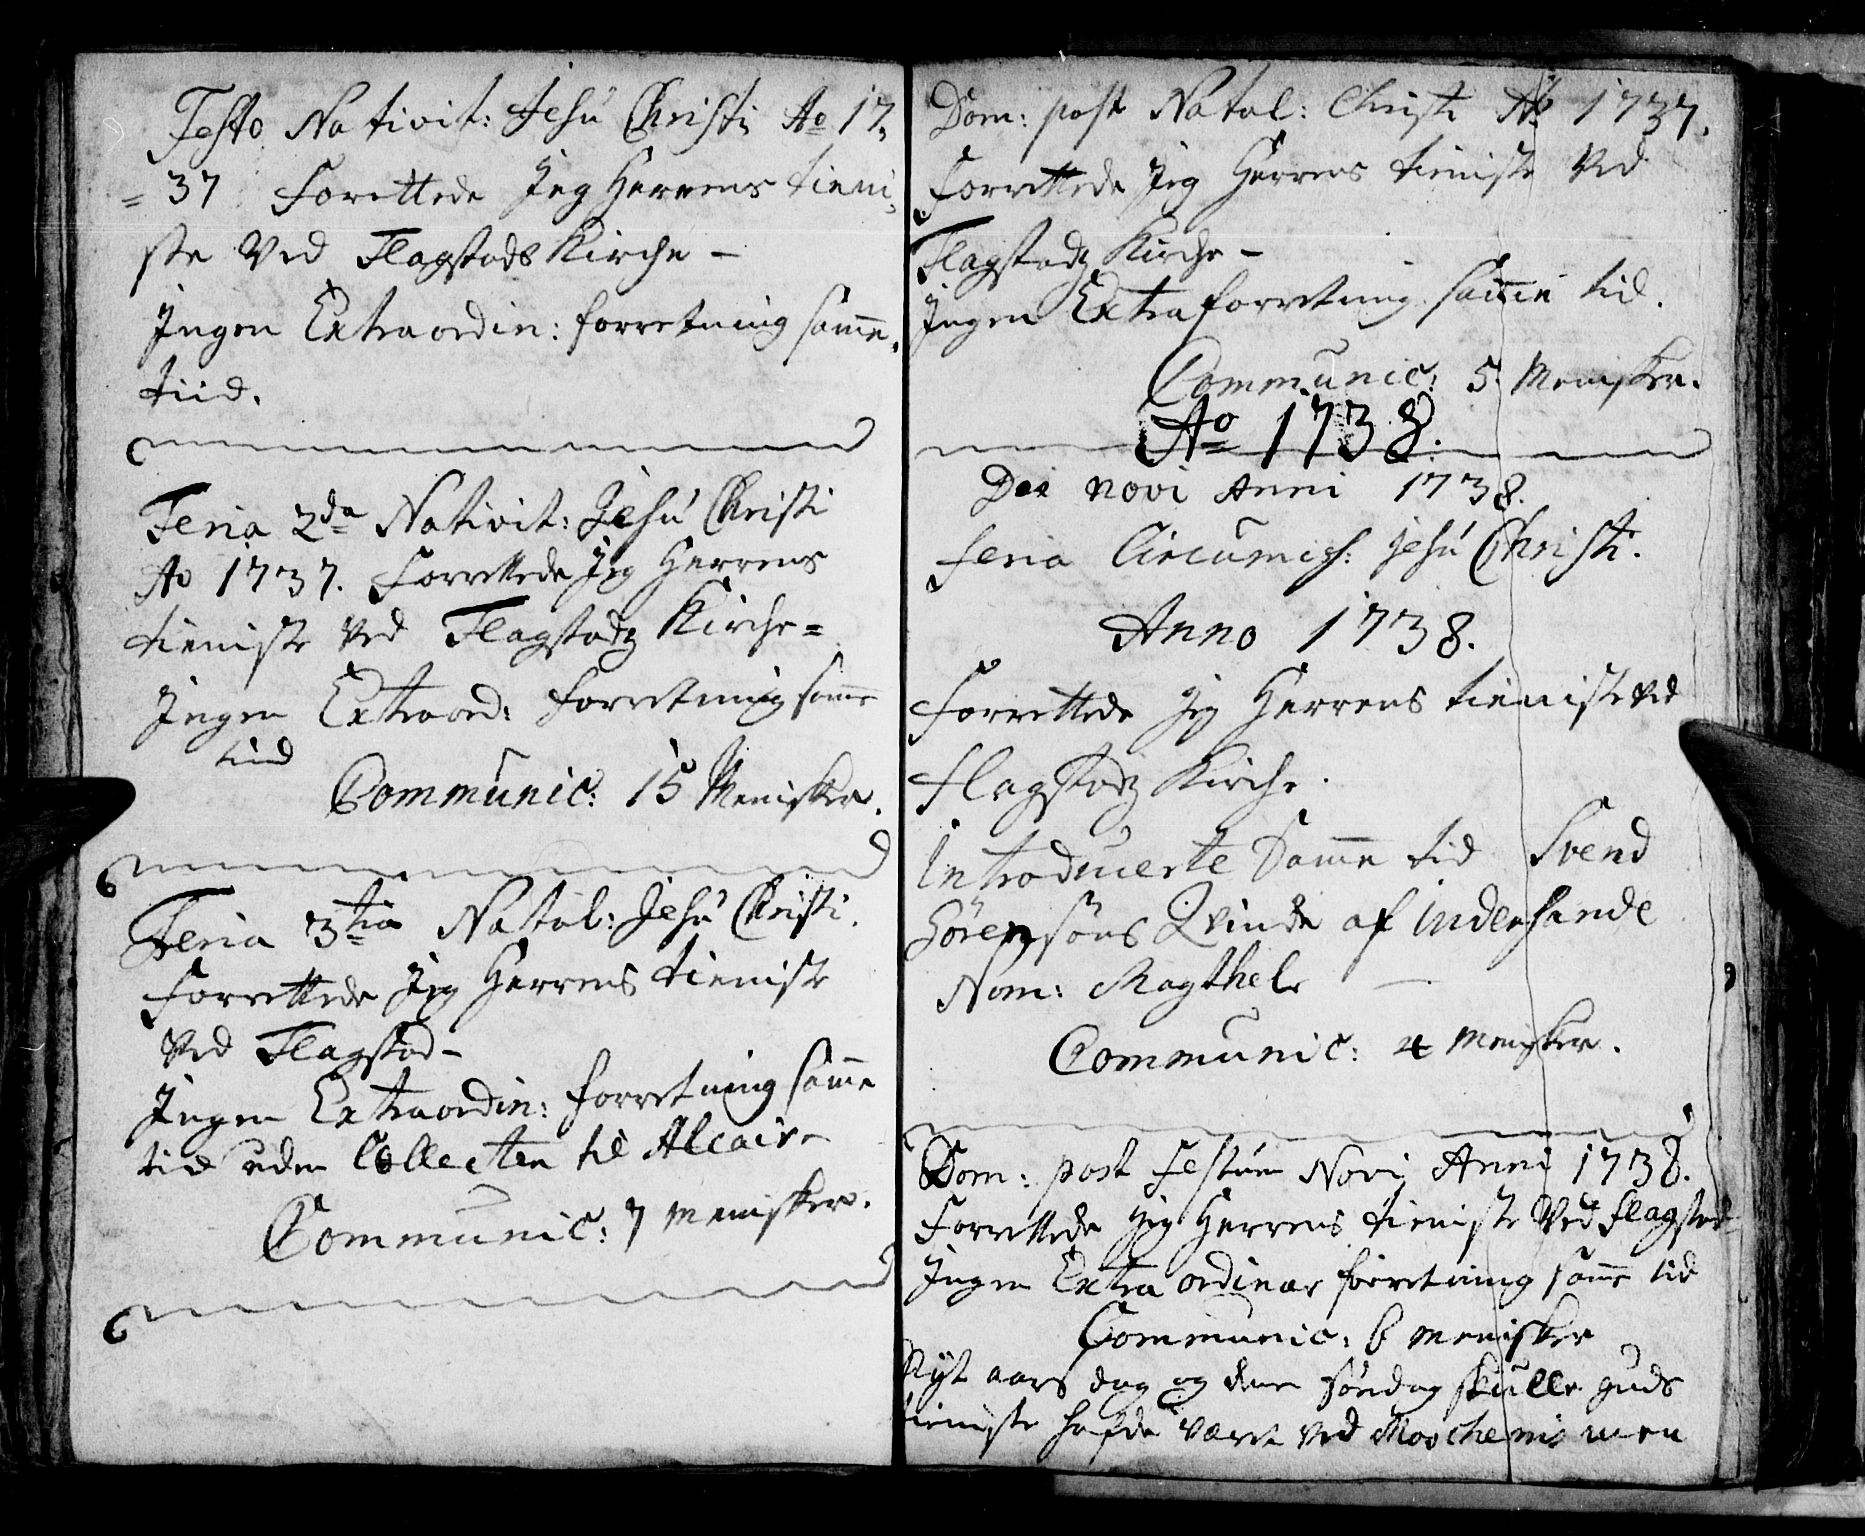 Festo Nativit: Jesu Christi Ao 17,
= 37 Forettede Jeg Herrens tieni,
ste Ved Flagstads Kirche –
Ingen Extraordin: forretning samme
tiid.
Feria 2da Nativit: Jesu Christi
Ao 1737. Forrettede Jeg Herrens
tieniste Ved Flagstadz Kirche =
Ingen Extraord: forretning samme
tiid
Communic: 15 Menisker.
Feria 3tia Natal: Jesu Christi.
Forrettede Jeg Herrens tieniste
Ved Flagstad –
Ingen Extraordin: forretning samme
tid uden Collecten til Alcair –
Communic: 7 Menisker.
Dom: post Natal: Christi Ao 1737.
Forrettede Jeg Herrens tieniste Ved
Flagstadz Kirche –
Ingen Extraforretning samme tid.
Communic: 5 Menisker.
Ao 1738.
Dei novi Anni 1738.
Feria Circumcis: Jesu Christi.
Anno 1738.
Forrettede Jeg Herrens tieniste Ved
Flagstadz Kirche.
Introducerte Samme tid Svend
Sörensöns Qvinde af
Nom: Magthele –
Communic: 4 Menisker.
Dom: post Festum Novi Anni 1738.
Forrettede Jeg Herrens tieniste Ved Flagstad
Ingen Extra ordinar forretning samme tid
Communic: 6 Menisker
Nyt aars dag og denne söndag skulle guds
tieniste hafde været Ved men